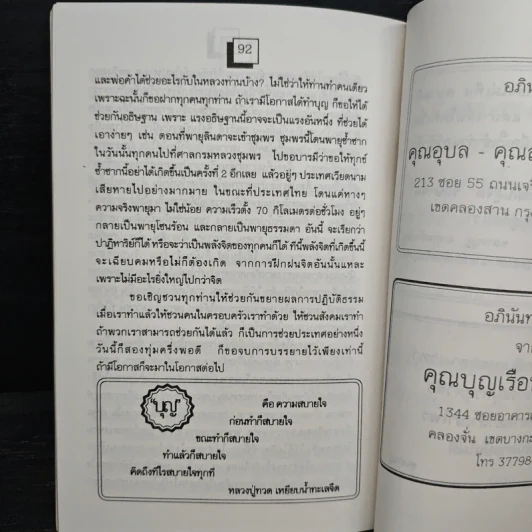 92
และพ่อค้าได้ช่วยอะไรกับในหลวงท่านบ้าง? ไม่ใช่ว่าให้ท่านทำคนเดียว
เพราะฉะนั้นก็ขอฝากทุกคนทุกท่าน ถ้าเรามีโอกาสได้ทำบุญ ก็ขอให้ได้
ช่วยกันอธิษฐาน เพราะ แรงอธิษฐานนี้อาจจะเป็นแรงอันหนึ่ง ที่ช่วยได้
เอาง่ายๆ เช่น ตอนที่พายุลินดาจะเข้าชุมพร ชุมพรนี้โดนพายุซ้ำซาก
ในวันนั้นทุกคนไปที่ศาลกรมหลวงชุมพร ไปขอบารมีว่าขอให้ทุกข์
ซ้ำซากนี้อย่าได้เกิดขึ้นเป็นครั้งที่ 2 อีกเลย แล้วอยู่ๆ ประเทศเวียดนาม
เสียหายไปอย่างมากมาย ในขณะที่ประเทศไทย โดนแค่หางๆ
ความจริงพายุมา ไม่ใช่น้อย ความเร็วตั้ง 70 กิโลเมตรต่อชั่วโมง อยู่ๆ
กลายเป็นพายุโซนร้อน และกลายเป็นพายุธรรมดา อันนี้ จะเรียกว่า
ปาฏิหาริย์ก็ได้ หรือจะว่าเป็นพลังจิตของทุกคนก็ได้ ทีนี้พลังจิตที่เกิดขึ้นนี้
จะเฉียบคมหรือไม่ก็ต้องเกิด จากการฝึกฝนจิตอันนั้นแหละ
เพราะไม่มีอะไรยิ่งใหญ่ไปกว่าจิต
ขอเชิญชวนทุกท่านให้ช่วยกันขยายผลการปฏิบัติธรรม
เมื่อเราทำแล้วก็ให้ชวนคนในครอบครัวเราทำด้วย ให้ชวนสังคมเราทำ
ถ้าพวกเราสามารถช่วยกันได้แล้ว ก็เป็นการช่วยประเทศอย่างหนึ่ง
วันนี้ก็สองทุ่มครึ่งพอดี ก็ขอจบการบรรยายไว้เพียงเท่านี้
ถ้ามีโอกาสก็จะมาในโอกาสต่อไป
"บุญ"
คือ ความสบายใจ
ก่อนทำก็สบายใจ
ขณะทำก็สบายใจ
ทำแล้วก็สบายใจ
คิดถึงทีไรสบายใจทุกที
หลวงปู่ทวด เหยียบน้ำทะเลจืด
อภินั
คุณอุบล - คุณ
213 ซอย 55 ถนนเจริ
เขตคลองสาน กรุ
อภินันท
จา
คุณบุญเรือ
1344 ซอยอาคาร
คลองจั่น เขตบางก
โทร 37798